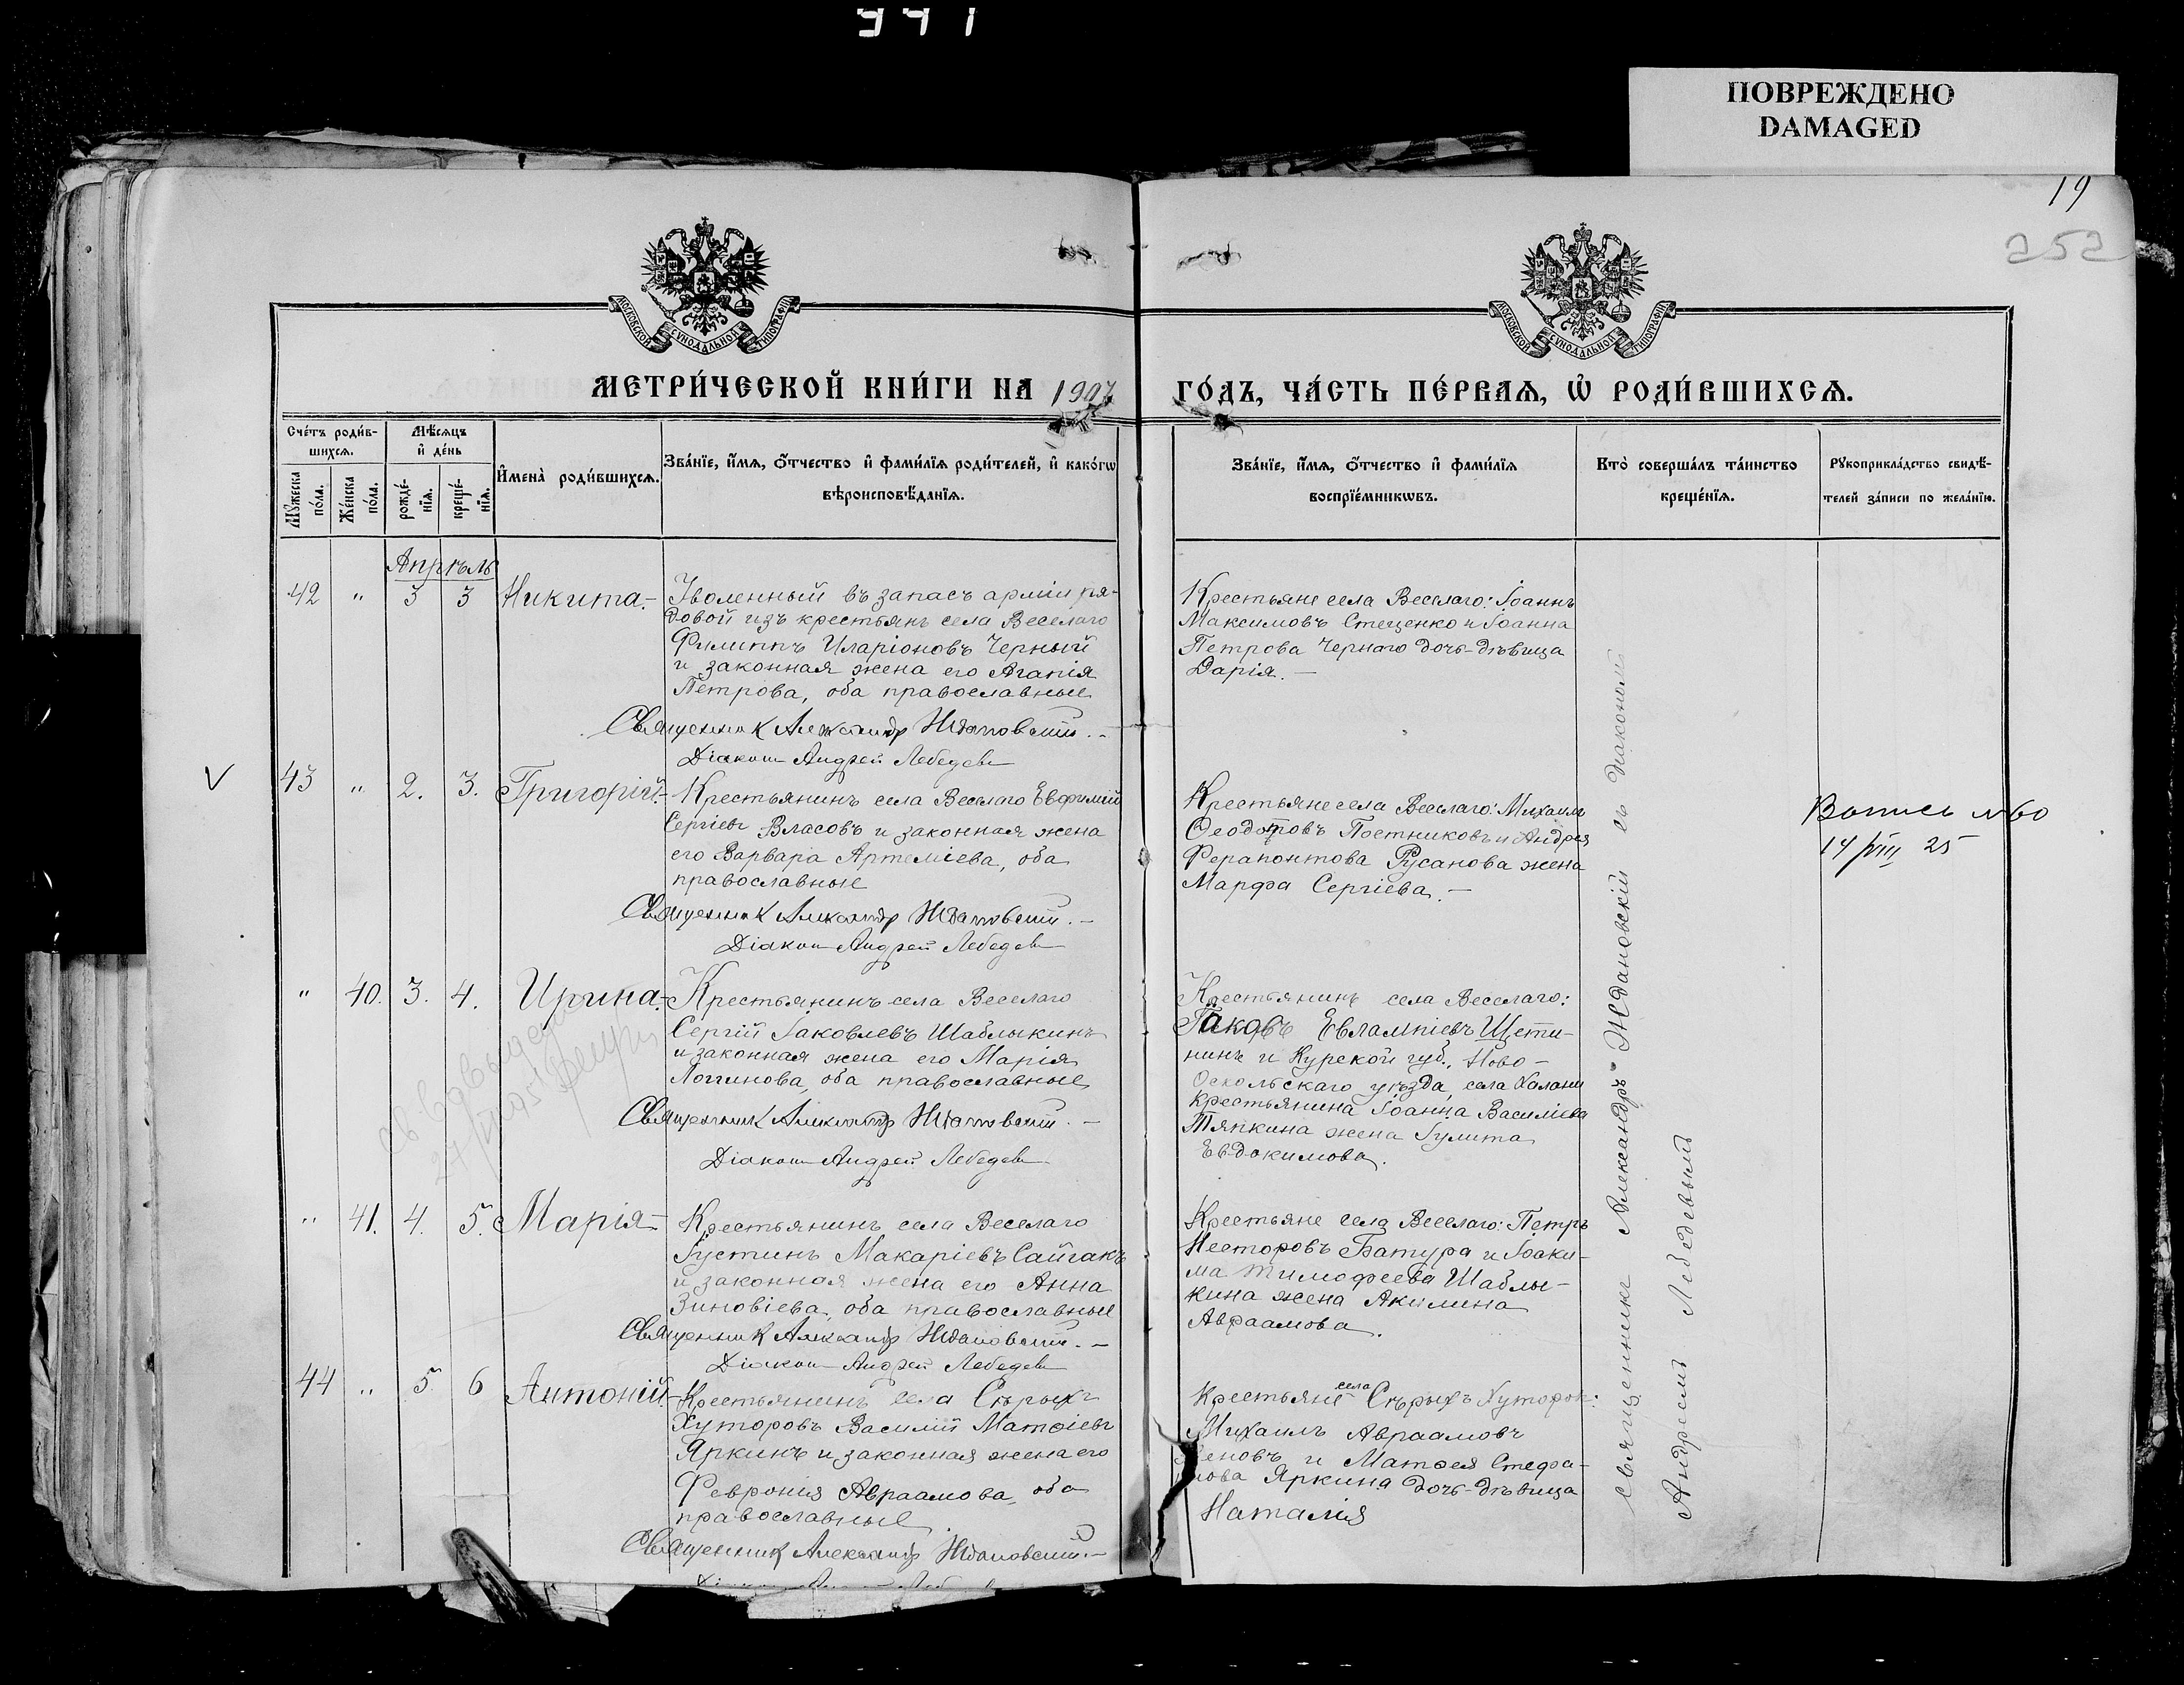 ПОВРЕЖДЕНО
DAMAGED
19
252
МОСКОВСКОЙ СѴНОДАЛЬНОЙ ТИПОГРАФІИ
МОСКОВСКОЙ СѴНОДАЛЬНОЙ ТИПОГРАФІИ
МЕТРИ́ЧЕСКОЙ КНИ́ГИ НА 1907
ГО́ДЪ, ЧА́СТЬ ПЕ́РВАѦ, Ѡ҆ РОДИ́ВШИХСѦ.
Сче́тъ роди́в-
шихсѧ.
Мѣ́сѧцъ
и҆ де́нь
Мꙋ́жеска
по́ла.
Же́нска
по́ла.
рожде́-
нїѧ.
креще́-
нїѧ.
И҆мена̀ роди́вшихсѧ.
Зва́нїе, и҆́мѧ, ѻ҆́тчество и҆ фами́лїѧ роди́телей, и҆ како́гѡ
вѣроисповѣ́данїѧ.
Зва́нїе, и҆́мѧ, ѻ҆́тчество и҆ фами́лїѧ
воспрїе́мникѡвъ.
Кто̀ соверша́лъ та́инство
креще́нїѧ.
Рꙋкоприкла́дство свидѣ́-
телей за́писи по жела́нїю.
Апрѣль
42 " 3 3 Никита.- Уволенный въ запасъ арміи ря-
довой изъ крестьянъ села Веселаго
Филиппъ Иларіоновъ Черный
и законная жена его Агапія
Петрова, оба православные
Священник Александр Ждановскій.-
Діакон Андрей Лебедев
Крестьяне села Веселаго: Іоаннъ
Максимовъ Стеценко и Іоанна
Петрова Чернаго дочь-дѣвица
Дарія.-
V 43 " 2. 3. Григорій.- Крестьянинъ села Веселаго Евфимій
Сергіевъ Власовъ и законная жена
его Варвара Артеміева, оба
православные
Священник Александр Ждановскій.-
Діакон Андрей Лебедев
Крестьяне села Веселаго: Михаилъ
Ѳеодотовъ Постниковъ и Андрея
Ферапонтова Русанова жена
Марфа Сергіева.-
14/VIII 25
" 40. 3. 4. Ирина.- Крестьянинъ села Веселаго
Сергій Іаковлевъ Шаблыкинъ
и законная жена его Марія
Логгинова, оба православные
Священник Александр Ждановскій.-
Діакон Андрей Лебедев
Крестьянинъ села Веселаго:
Іаковъ Евлампіевъ Щети-
нинъ и Курской губ., Ново-
Оскольскаго уѣзда, села Халани
крестьянина Іоанна Василіева
Тяпкина жена Іулита
Евдокимова.
" 41. 4. 5. Марія- Крестьянинъ села Веселаго
Іустинъ Макаріевъ Сайгакъ
и законная жена его Анна
Зиновіева, оба православные
Священник Александр Ждановскій.-
Діакон Андрей Лебедев
Крестьяне села Веселаго: Петръ
Несторовъ Батура и Іоаки-
ма Тимофеева Шаблы-
кина жена Акилина
Авраамова.
44 " 5 6 Антоній.- Крестьянинъ села Сѣрыхъ
Хуторовъ Василій Матѳіевъ
Яркинъ и законная жена его
Феврония Авраамова, оба
православные
Священник Александр Ждановскій.-
Крестьяне села Сѣрыхъ Хуторов:
Михаилъ Авраамовъ
и Матѳея Стефа-
нова Яркина дочь-дѣвица
Наталія
священнике Александръ Ждановскій съ діакономъ
Андреемъ Лебедевымъ